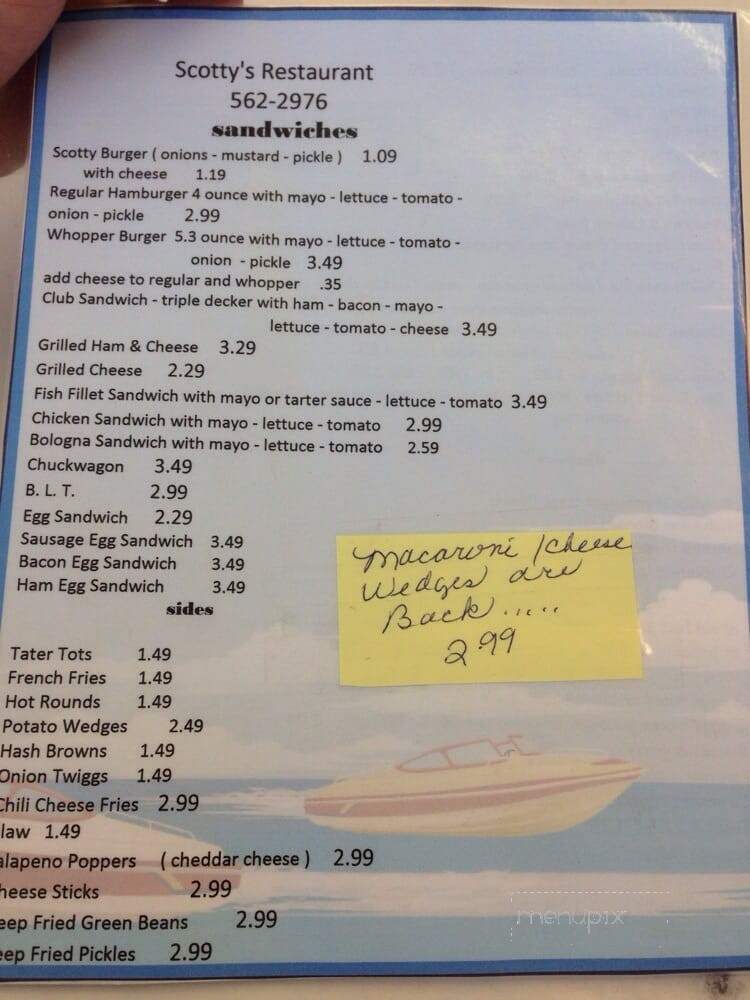 Scotty's Restaurant
562-2976
sandwiches
Scotty Burger ( onions - mustard - pickle ) 1.09
with cheese 1.19
Regular Hamburger 4 ounce with mayo - lettuce - tomato -
onion - pickle 2.99
Whopper Burger 5.3 ounce with mayo - lettuce - tomato -
onion - pickle 3.49
add cheese to regular and whopper .35
Club Sandwich - triple decker with ham - bacon - mayo -
lettuce - tomato - cheese 3.49
Grilled Ham & Cheese 3.29
Grilled Cheese 2.29
Fish Fillet Sandwich with mayo or tarter sauce - lettuce - tomato 3.49
Chicken Sandwich with mayo - lettuce - tomato 2.99
Bologna Sandwich with mayo - lettuce - tomato 2.59
Chuckwagon 3.49
B. L. T. 2.99
Egg Sandwich 2.29
Sausage Egg Sandwich 3.49
Bacon Egg Sandwich 3.49
Ham Egg Sandwich 3.49
Macaroni / cheese
Wedges are
Back.....
2.99
sides
Tater Tots 1.49
French Fries 1.49
Hot Rounds 1.49
Potato Wedges 2.49
Hash Browns 1.49
Onion Twiggs 1.49
Chili Cheese Fries 2.99
law 1.49
alapeno Poppers ( cheddar cheese ) 2.99
heese Sticks 2.99
eep Fried Green Beans 2.99
eep Fried Pickles 2.99
menupix